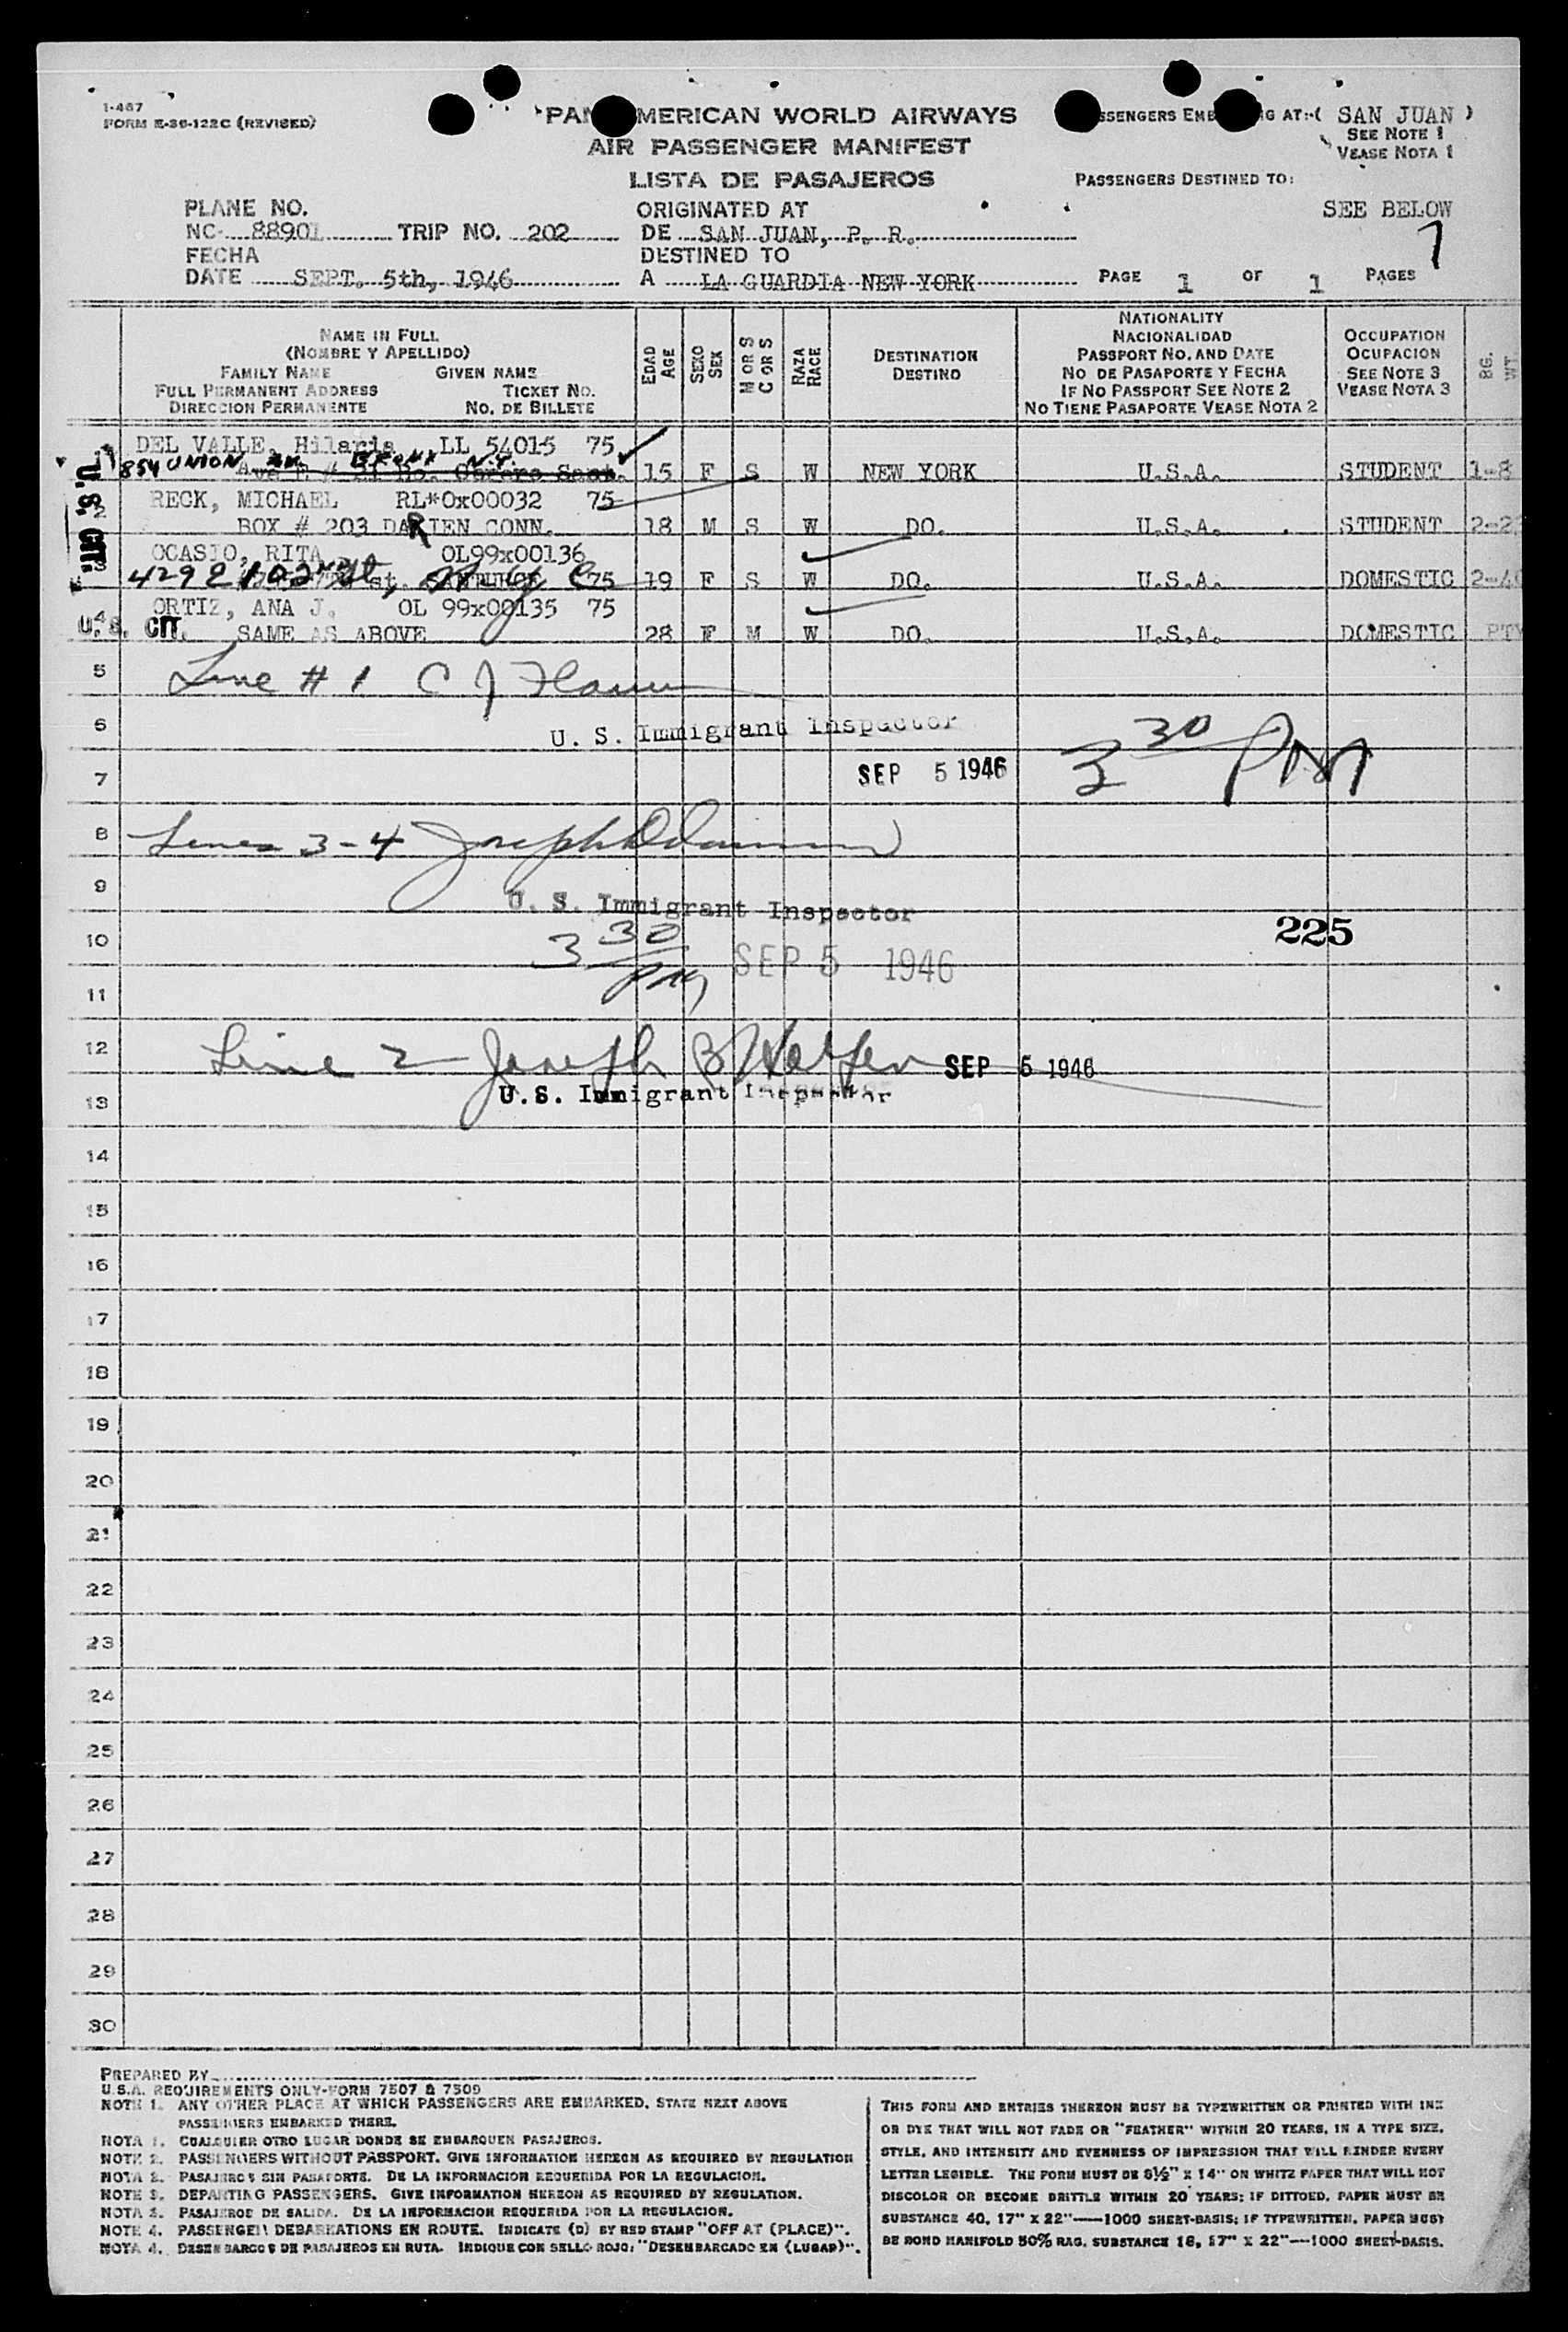 I-467
FORM E-36-122C (REVISED)
PAN AMERICAN WORLD AIRWAYS
AIR PASSENGER MANIFEST
LISTA DE PASAJEROS
AT:-( SAN JUAN )
SEE NOTE 1
VEASE NOTA 1
PASSENGERS DESTINED TO:
SEE BELOW
7
PLANE NO.
NC 88901 TRIP NO. 202
FECHA
DATE SEPT. 5th, 1946
ORIGINATED AT
DE SAN JUAN, P. R.
DESTINED TO
A LA GUARDIA NEW YORK
PAGE 1 OF 1 PAGES
NAME IN FULL
(NOMBRE Y APELLIDO)
FAMILY NAME GIVEN NAME
FULL PERMANENT ADDRESS TICKET NO.
DIRECCION PERMANENTE NO. DE BILLETE
EDAD
AGE
SEXO
SEX
M OR S
C OR S
RAZA
RACE
DESTINATION
DESTINO
NATIONALITY
NACIONALIDAD
PASSPORT NO. AND DATE
NO DE PASAPORTE Y FECHA
IF NO PASSPORT SEE NOTE 2
NO TIENE PASAPORTE VEASE NOTA 2
OCCUPATION
OCUPACION
SEE NOTE 3
VEASE NOTA 3
BG.
WT
U.S. CIT.
DEL VALLE, Hilaria LL 54015 75
854 UNION AV. BRONX N.Y. 15 F S W NEW YORK U.S.A. STUDENT 1-8
2 RECK, MICHAEL RL*0x00032 75
BOX # 203 DARIEN CONN. 18 M S W DO. U.S.A. STUDENT
OCASIO, RITA OL99x00136
429 E 102nd St, N Y C 75 19 F S W DO. U.S.A. DOMESTIC
4 ORTIZ, ANA J. OL 99x00135 75
U.S. CIT. SAME AS ABOVE 28 F M W DO. U.S.A. DOMESTIC PTY
5 Line # 1 C J
6 U. S. Immigrant Inspector
3 30 PM
7 SEP 5 1946
8 Lines 3-4 Joseph
9 U. S. Immigrant Inspector
225
10 3 30 PM SEP 5 1946
11
12 Line 2 Joseph B SEP 5 1946
13 U.S. Immigrant Inspector
14
15
16
17
18
19
20
21
22
23
24
25
26
27
28
29
30
PREPARED BY
U.S.A. REQUIREMENTS ONLY-FORM 7507 & 7509
NOTE 1. ANY OTHER PLACE AT WHICH PASSENGERS ARE EMBARKED, STATE NEXT ABOVE
PASSENGERS EMBARKED THERE.
NOTA 1. CUALQUIER OTRO LUGAR DONDE SE EMBARQUEN PASAJEROS.
NOTE 2. PASSENGERS WITHOUT PASSPORT. GIVE INFORMATION HEREON AS REQUIRED BY REGULATION
NOTA 2. PASAJEROS SIN PASAPORTE. DE LA INFORMACION REQUERIDA POR LA REGULACION.
NOTE 3. DEPARTING PASSENGERS. GIVE INFORMATION HEREON AS REQUIRED BY REGULATION.
NOTA 3. PASAJEROS DE SALIDA. DE LA INFORMACION REQUERIDA POR LA REGULACION.
NOTE 4. PASSENGER DEBARKATIONS EN ROUTE. INDICATE (D) BY RED STAMP "OFF AT (PLACE)".
NOTA 4. DESEMBARCOS DE PASAJEROS EN RUTA. INDIQUE CON SELLO ROJO: "DESEMBARCADO EN (LUGAR)".
THIS FORM AND ENTRIES THEREON MUST BE TYPEWRITTEN OR PRINTED WITH INK
OR DYE THAT WILL NOT FADE OR "FEATHER" WITHIN 20 YEARS, IN A TYPE SIZE,
STYLE, AND INTENSITY AND EVENNESS OF IMPRESSION THAT WILL RENDER EVERY
LETTER LEGIBLE. THE FORM MUST BE 8½" X 14" ON WHITE PAPER THAT WILL NOT
DISCOLOR OR BECOME BRITTLE WITHIN 20 YEARS; IF DITTOED, PAPER MUST BE
SUBSTANCE 40, 17" X 22"—1000 SHEET-BASIS; IF TYPEWRITTEN, PAPER MUST
BE BOND MANIFOLD 50% RAG, SUBSTANCE 16, 17" X 22"—1000 SHEET-BASIS.